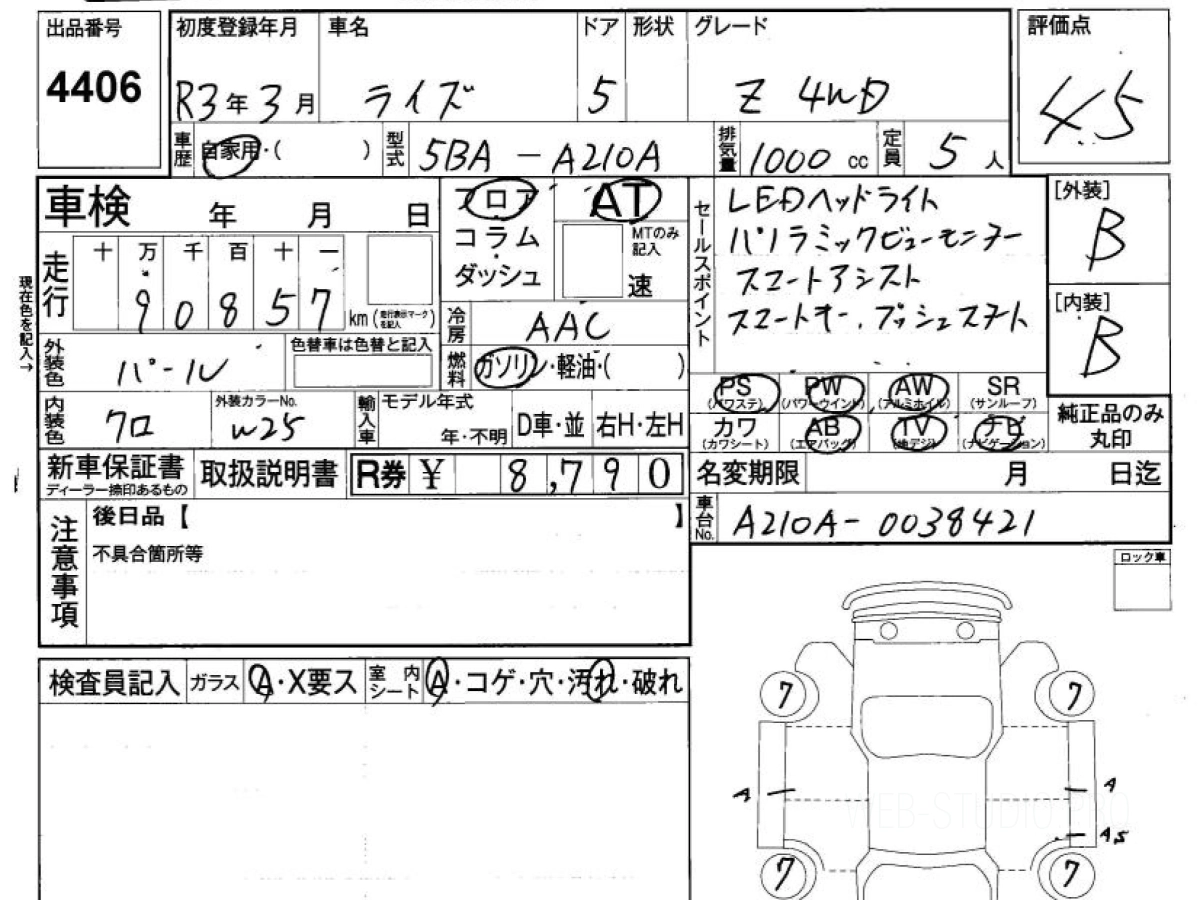 出品番号
4406
初度登録年月
R3年3月
車名
ライズ
ドア
5
形状
グレード
Z 4WD
評価点
4.5
車歴
自家用・( )
型式
5BA - A210A
排気量
1000 cc
定員
5 人
車検 年 月 日
フロア
コラム
ダッシュ
AT
MTのみ
記入
速
セールスポイント
LEDヘッドライト
パノラミックビューモニター
スマートアシスト
スマートキー、プッシュスタート
[外装]
B
[内装]
B
現在色を記入→
走行
十 万 千 百 十 一
9 0 8 5 7
km (走行表示マークを記入)
冷房
AAC
外装色
パール
色替車は色替と記入
燃料
ガソリン・軽油・( )
PS
(パワステ)
PW
(パワーウインド)
AW
(アルミホイル)
SR
(サンルーフ)
カワ
(カワシート)
AB
(エアバッグ)
TV
(地デジ)
ナビ
(ナビゲーション)
純正品のみ
丸印
内装色
クロ
外装カラーNo.
W25
輸入車
モデル年式
年・不明
D車・並
右H・左H
新車保証書
ディーラー捺印あるもの
取扱説明書
R券 ¥ 8,790
名変期限 月 日迄
車台No.
A210A-0038421
注意事項
後日品【 】
不具合箇所等
ロック車
検査員記入
ガラス
A・X要ス
室内
シート
A・コゲ・穴・汚れ・破れ
7
7
A
A
A5
WEB-STUDIO.PRO
7
7